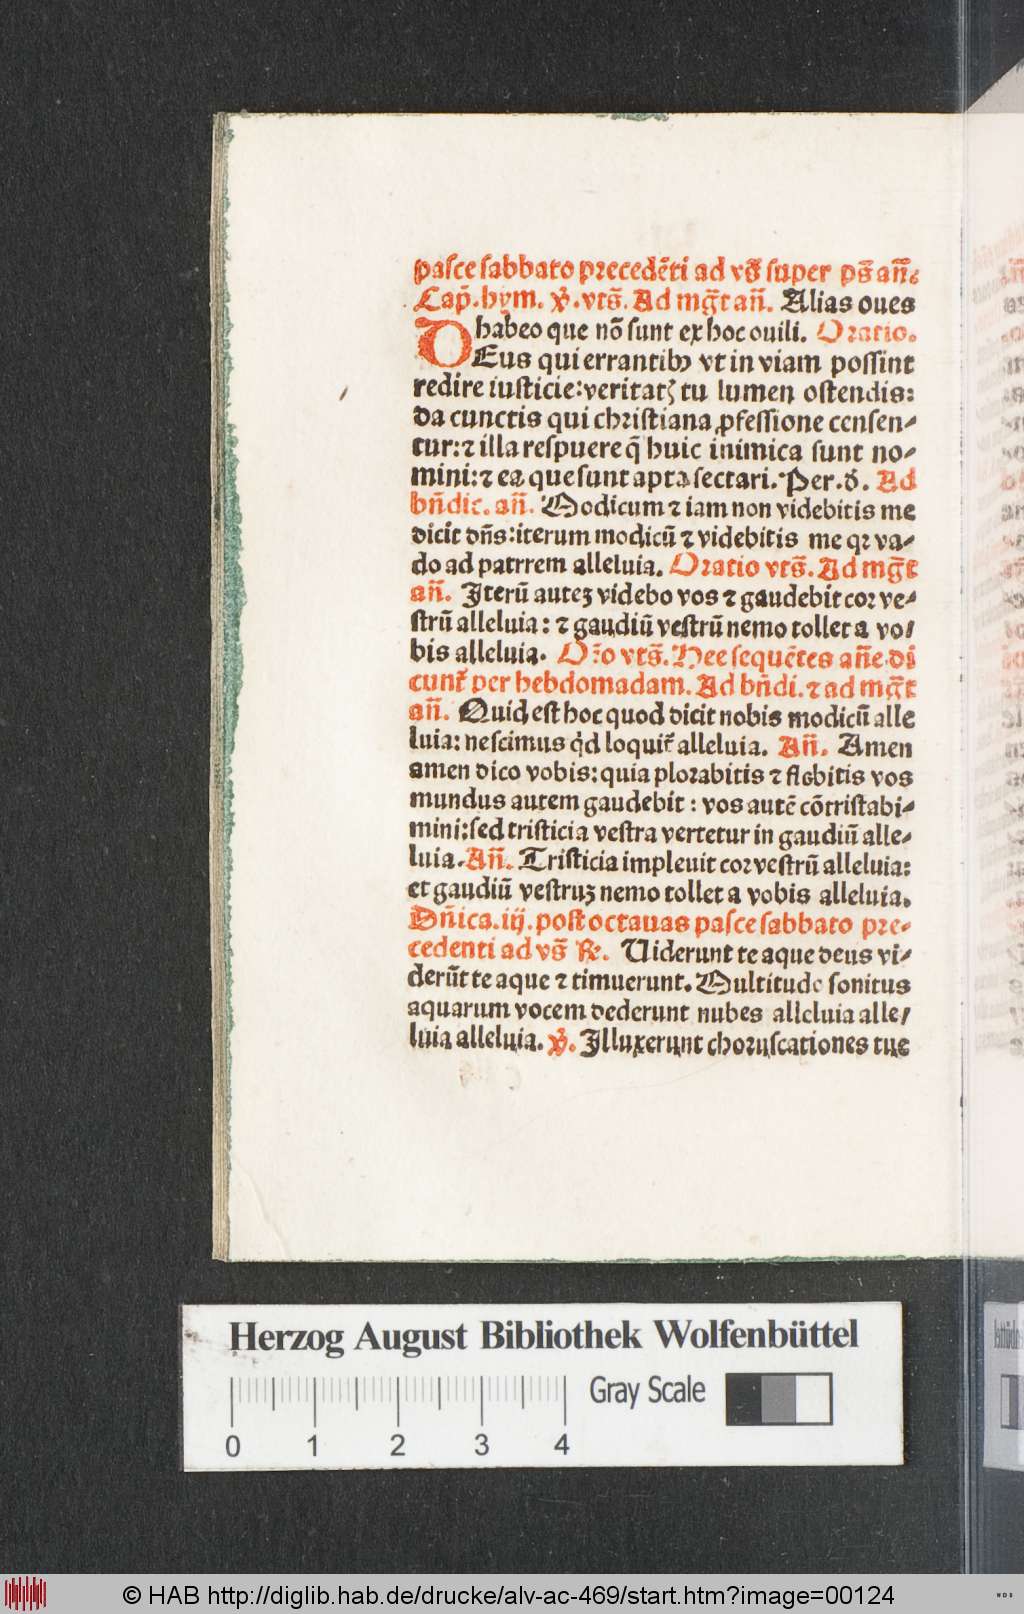 pasce sabbato precedēti ad vs̄ super ps̄ an̄n.
Cap̄. hym. ℣. vts̄. Ad mḡt an̄. Alias oues
habeo que nō sunt ex hoc ouili. Oratio.
DEus qui errantibꝫ vt in viam possint
redire iusticie: veritatꝭ tu lumen ostendis:
da cunctis qui christiana ꝓfessione censen-
tur: ⁊ illa respuere q̄ huic inimica sunt no-
mini: ⁊ ea que sunt apta sectari. Per. d. Ad
bn̄dic. an̄. Modicum ⁊ iam non videbitis me
dicit dn̄s: iterum modicū ⁊ videbitis me qꝛ va-
do ad patrrem alleluia. Oratio vts̄. Ad mḡt
an̄. Iterū auteꝫ videbo vos ⁊ gaudebit cor ve-
strū alleluia: ⁊ gaudiū vestrū nemo tollet a vo/
bis alleluia. Oꝛ̄o vts̄. Hee sequētes an̄e di
cunt᷑ per hebdomadam. Ad bn̄di. ⁊ ad mḡt
an̄. Quid est hoc quod dicit nobis modicū alle
luia: nescimus qd̓ loquit᷑ alleluia. An̄. Amen
amen dico vobis: quia plorabitis ⁊ flebitis vos
mundus autem gaudebit: vos autē cōtristabi-
mini: sed tristicia vestra vertetur in gaudiū alle-
luia. An̄. Tristicia impleuit cor vestrū alleluia:
et gaudiū vestruꝫ nemo tollet a vobis alleluia.
Dn̄ica. iij. post octauas pasce sabbato pre-
cedenti ad vs̄ ℞. Uiderunt te aque deus vi-
derūt te aque ⁊ timuerunt. Multitudo sonitus
aquarum vocem dederunt nubes alleluia alle/
luia alleluia. ℣. Illuxerunt choruscationes tue
Herzog August Bibliothek Wolfenbüttel
Gray Scale
0 1 2 3 4
© HAB http://diglib.hab.de/drucke/alv-ac-469/start.htm?image=00124